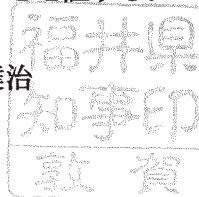 治
福井県
知事印
敦賀